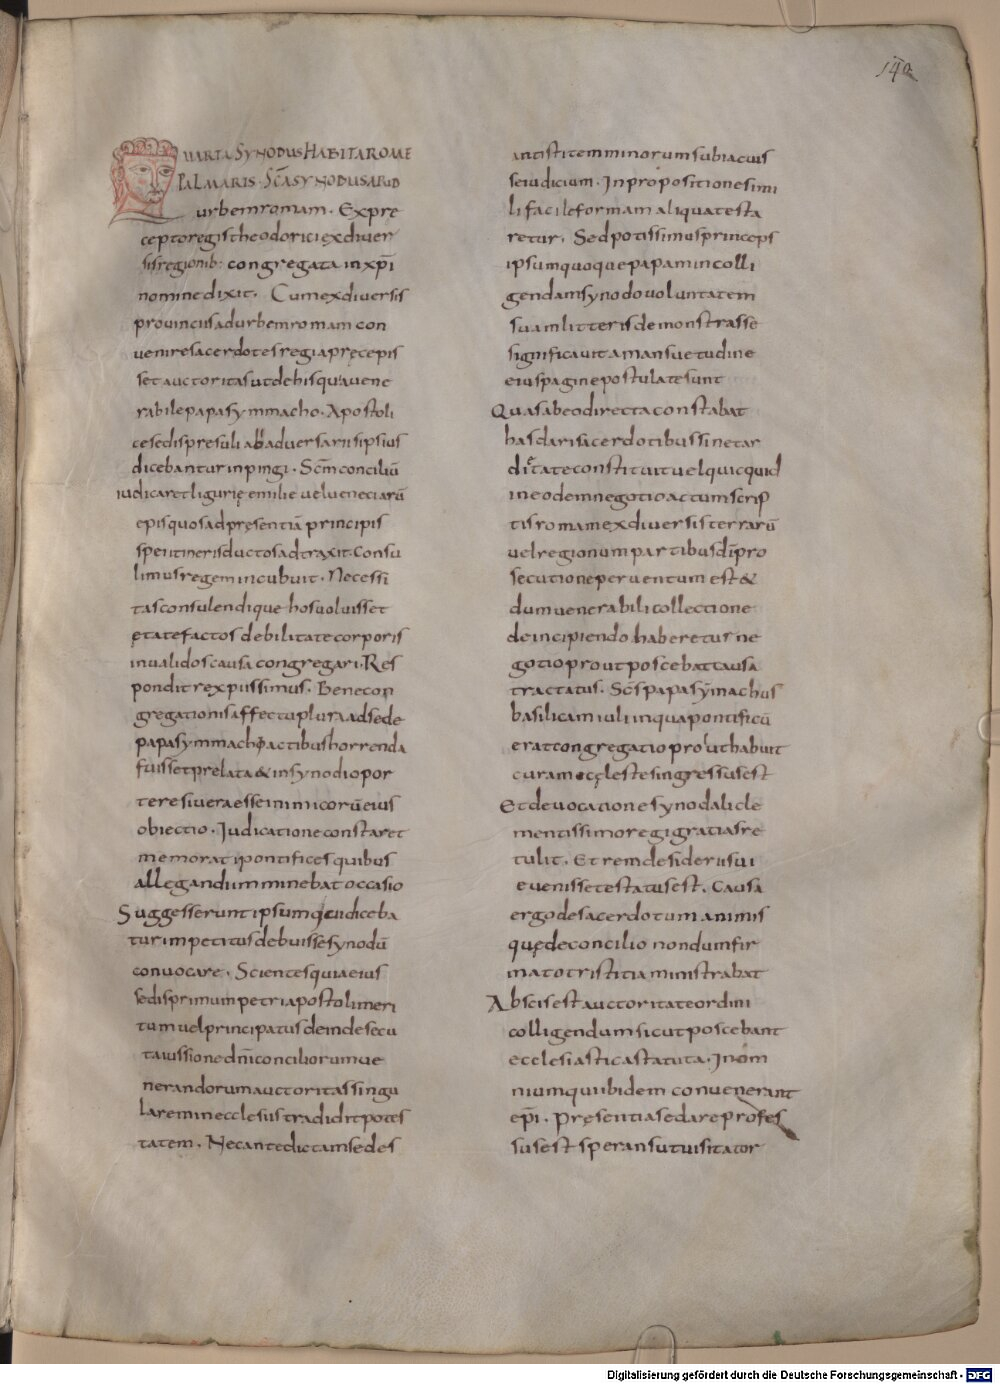 140
QUARTA SYNODUS HABITA ROME
PALMARIS. SC̄A SYNODUS APUD
urbem romam. Ex pre
cepto regis theodorici ex diuer
sis regionib: congregata in xp̄i
nomine dixit. Cum ex diuersis
prouinciis ad urbem romam con
uenire sacerdotes regia pręcepis
set auctoritas ut de his qu
 uene
rabile papa symmacho. Apostoli
ce sedis presuli ab aduersariis ipsius
dicebantur inpingi. Sc̄m conciliū
iudicaret ligurię emilie uel ueneciarū
episquos ad pręsentiā principis
sui itineris ductos adtraxit. Consu
limus regem incubuit. Necessi
tas consulendi que hos uoluisset
ętate factos debilitate corporis
inualidos causa congregari. Res
pondit rex piissimus. Bene con
gregationis affectu plura ad se de
papa symmacho actibus horrenda
fuisset prelata & in synodi opor
tere si uera esse inimicorū eius
obiectio. Judicatione constaret
memorati pontifices quibus
allegandum minebat occasio
Suggesserunt ipsum qui diceba
tur impetitus debuisse synodū
conuocare. Scientes quia eius
sedis primum petri apostoli meri
tum uel principatus deinde secu
ta iussione dn̄i conciliorum ue
nerandorum auctoritas singu
larem in ecclesiis tradidit potes
tatem. Nec antedictam sedes
antistitem minorum subiacuis
se iudicium. In propositione simi
li facile formam aliqua testa
retur. Sed potissimus princeps
ipsum quoque papam in colli
gendam synodo uoluntatem
suam litteris demonstrasse
significauit a mansuetudine
eius pagine postulate sunt
Quas ab eo directa constabat
has dari sacerdotibus sine tar
ditate constituit uel quicquid
in eodem negotio actum scrip
tis romam ex diuersis terrarū
uel regionum partibus dn̄i pro
secutione peruentum est &
dum uenerabili collectione
de incipiendo haberetur ne
gotio prout poscebat causa
tractatus. Sc̄s papa sȳmachus
basilicam iuli in qua pontificū
erat congregatio prout habuit
curam ecęlestes ingressus est
Et de uocatione synodali cle
mentissimo regi gratias re
tulit. Et rem desiderii sui
euenisse testatus est. Causa
ergo de sacerdotum animis
quę de concilio nondum fir
mato tristitia ministrabat
Abscis est auctoritate ordini
colligendum sicut poscebant
ecclesiastica statuta. In om
nium qui ibidem conuenerant
ep̄i. Pręsentia se dare profes
sus est sperans ut uisitator
Digitalisierung gefördert durch die Deutsche Forschungsgemeinschaft - DFG